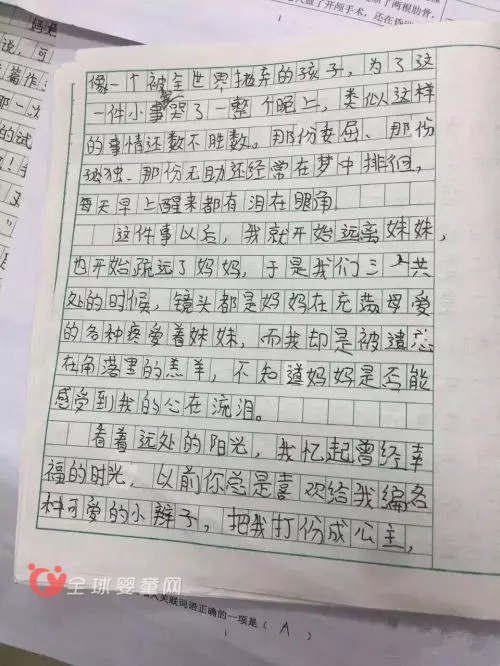 妈妈
说,可
篇作
那一次
的试
了两根肋骨,
做了开颅手术,还在
1
像一个被全世界抛弃的孩子,为了这
一件小事哭了一整个晚上,类似这样
的事情还数不胜数。那份委屈、那份
孤独、那份无助还经常在梦中排徊,
每天早上醒来都有泪在眼角。
这件事以后,我就开始远离妹妹,
也开始疏远了妈妈,于是我们三人共
处的时候,镜头都是妈妈在充满母爱
的各种疼爱着妹妹,而我却是被遗忘
在角落里的羔羊,不知道妈妈是否能
感受到我的心在流泪。
看着远处的阳光,我忆起曾经幸
福的时光,以前你总是喜欢给我编各
种可爱的小辫子,把我打份成公主,
全球婴童网
关联词语正确的一项是( A )
1